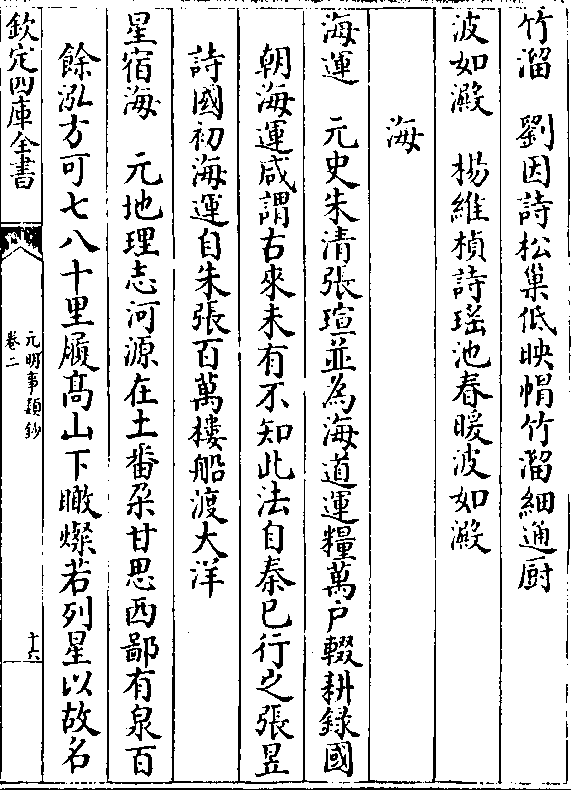 竹溜　劉因詩松巢低映帽竹溜細通厨
波如澱　楊維楨詩瑶池春暖波如澱
海
海運　元史朱清張瑄並為海道運糧萬户輟耕録國
朝海運咸謂古來未有不知此法自秦已行之張昱
詩國初海運自朱張百萬樓船渡大洋
星宿海　元地理志河源在土番朶甘思西鄙有泉百
餘泓方可七八十里履髙山下瞰燦若列星以故名
欽定四庫全書
元明事類鈔
卷二
十六